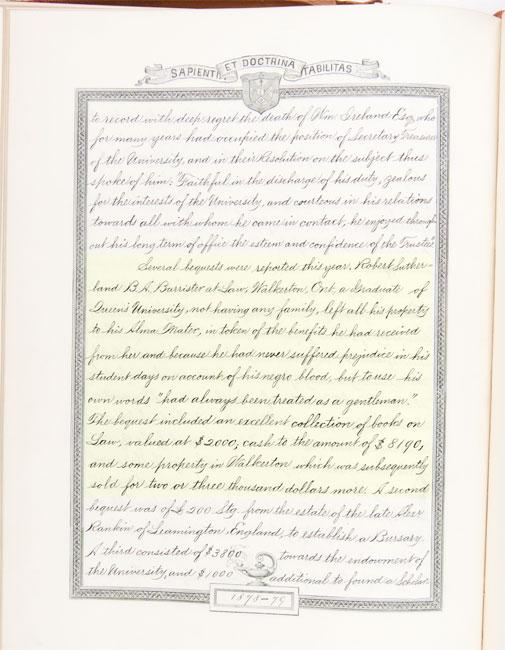 SAPIENTIA ET DOCTRINA STABILITAS
to record with deep regret the death of Wm Ireland Esq, who
for many years had occupied the position of Secretary Treasurer
of the University, and in their Resolution on the subject thus
spoke of him: "Faithful in the discharge of his duty, zealous
for the interests of the University, and courteous in his relations
towards all with whom he came in contact, he enjoyed through
out his long term of office the esteem and confidence of the Trustees."
Several bequests were reported this year. Robert Suther-
land B.A. Barrister-at-Law, Walkerton, Ont. a Graduate of
Queen's University, not having any family, left all his property
to his Alma Mater, in token of the benefits he had received
from her and because he had never suffered prejudice in his
student days on account of his negro blood, but to use his
own words "had always been treated as a gentleman."
The bequest included an excellent collection of books on
Law, valued at $2000, cash to the amount of $8190,
and some property in Walkerton which was subsequently
sold for two or three thousand dollars more. A second
bequest was of £200 Stg. from the estate of the late Alex
Rankin of Leamington, England, to establish a Bursary.
A third consisted of $3800 towards the endowment of
the University, and $1000 additional to found a Scholar-
1878-79